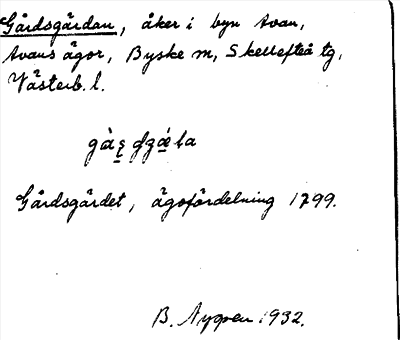 Gårdsgärdan, åker i byn Avan,
Avans ägor, Byske sn, Skellefteå tg,
Västerb. l.
Gårdsgärdet, ägofördelning 1799.
B. Nygren 1932.